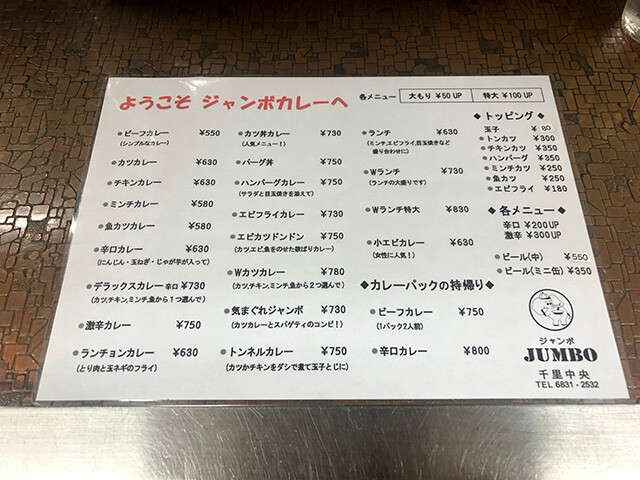 ようこそ ジャンボカレーへ
各メニュー 大もり ¥50 UP 特大 ¥100 UP
●ビーフカレー ¥550
(シンプルなカレー)
●カツカレー ¥630
●チキンカレー ¥630
●ミンチカレー ¥580
●魚カツカレー ¥580
●辛口カレー ¥630
(にんじん・玉ねぎ・じゃが芋が入って)
●デラックスカレー 辛口 ¥730
(カツ,チキン,ミンチ,魚から1つ選んで)
●激辛カレー ¥750
●ランチョンカレー ¥630
(とり肉と玉ネギのフライ)
●カツ丼カレー ¥730
(人気メニュー!)
●バーグ丼 ¥750
●ハンバーグカレー ¥750
(サラダと目玉焼きを添えて)
●エビフライカレー ¥730
●エビカツドンドン ¥750
(カツ,エビ,魚をのせた欲ばりカレー)
●Wカツカレー ¥780
(カツ,チキン,ミンチ,魚から2つ選んで)
●気まぐれジャンボ ¥730
(カツカレーとスパゲティのコンビ!)
●トンネルカレー ¥750
(カツかチキンをダシで煮て玉子とじに)
●ランチ ¥630
(ミンチ,エビフライ,目玉焼きなど
盛り合わせに)
●Wランチ ¥730
(ランチの大盛りです)
●Wランチ特大 ¥830
●小エビカレー ¥630
(女性に人気!)
◆カレーパックの持帰り◆
●ビーフカレー ¥750
(1パック2人前)
●辛口カレー ¥800
◆ トッピング ◆
玉子 ¥80
●トンカツ ¥300
●チキンカツ ¥350
●ハンバーグ ¥350
●ミンチカツ ¥250
●魚カツ ¥250
●エビフライ ¥180
◆ 各メニュー ◆
辛口 ¥200UP
激辛 ¥300UP
●ビール(中) ¥550
●ビール(ミニ缶) ¥350
ジャンボ
JUMBO
千里中央
TEL 6831-2532